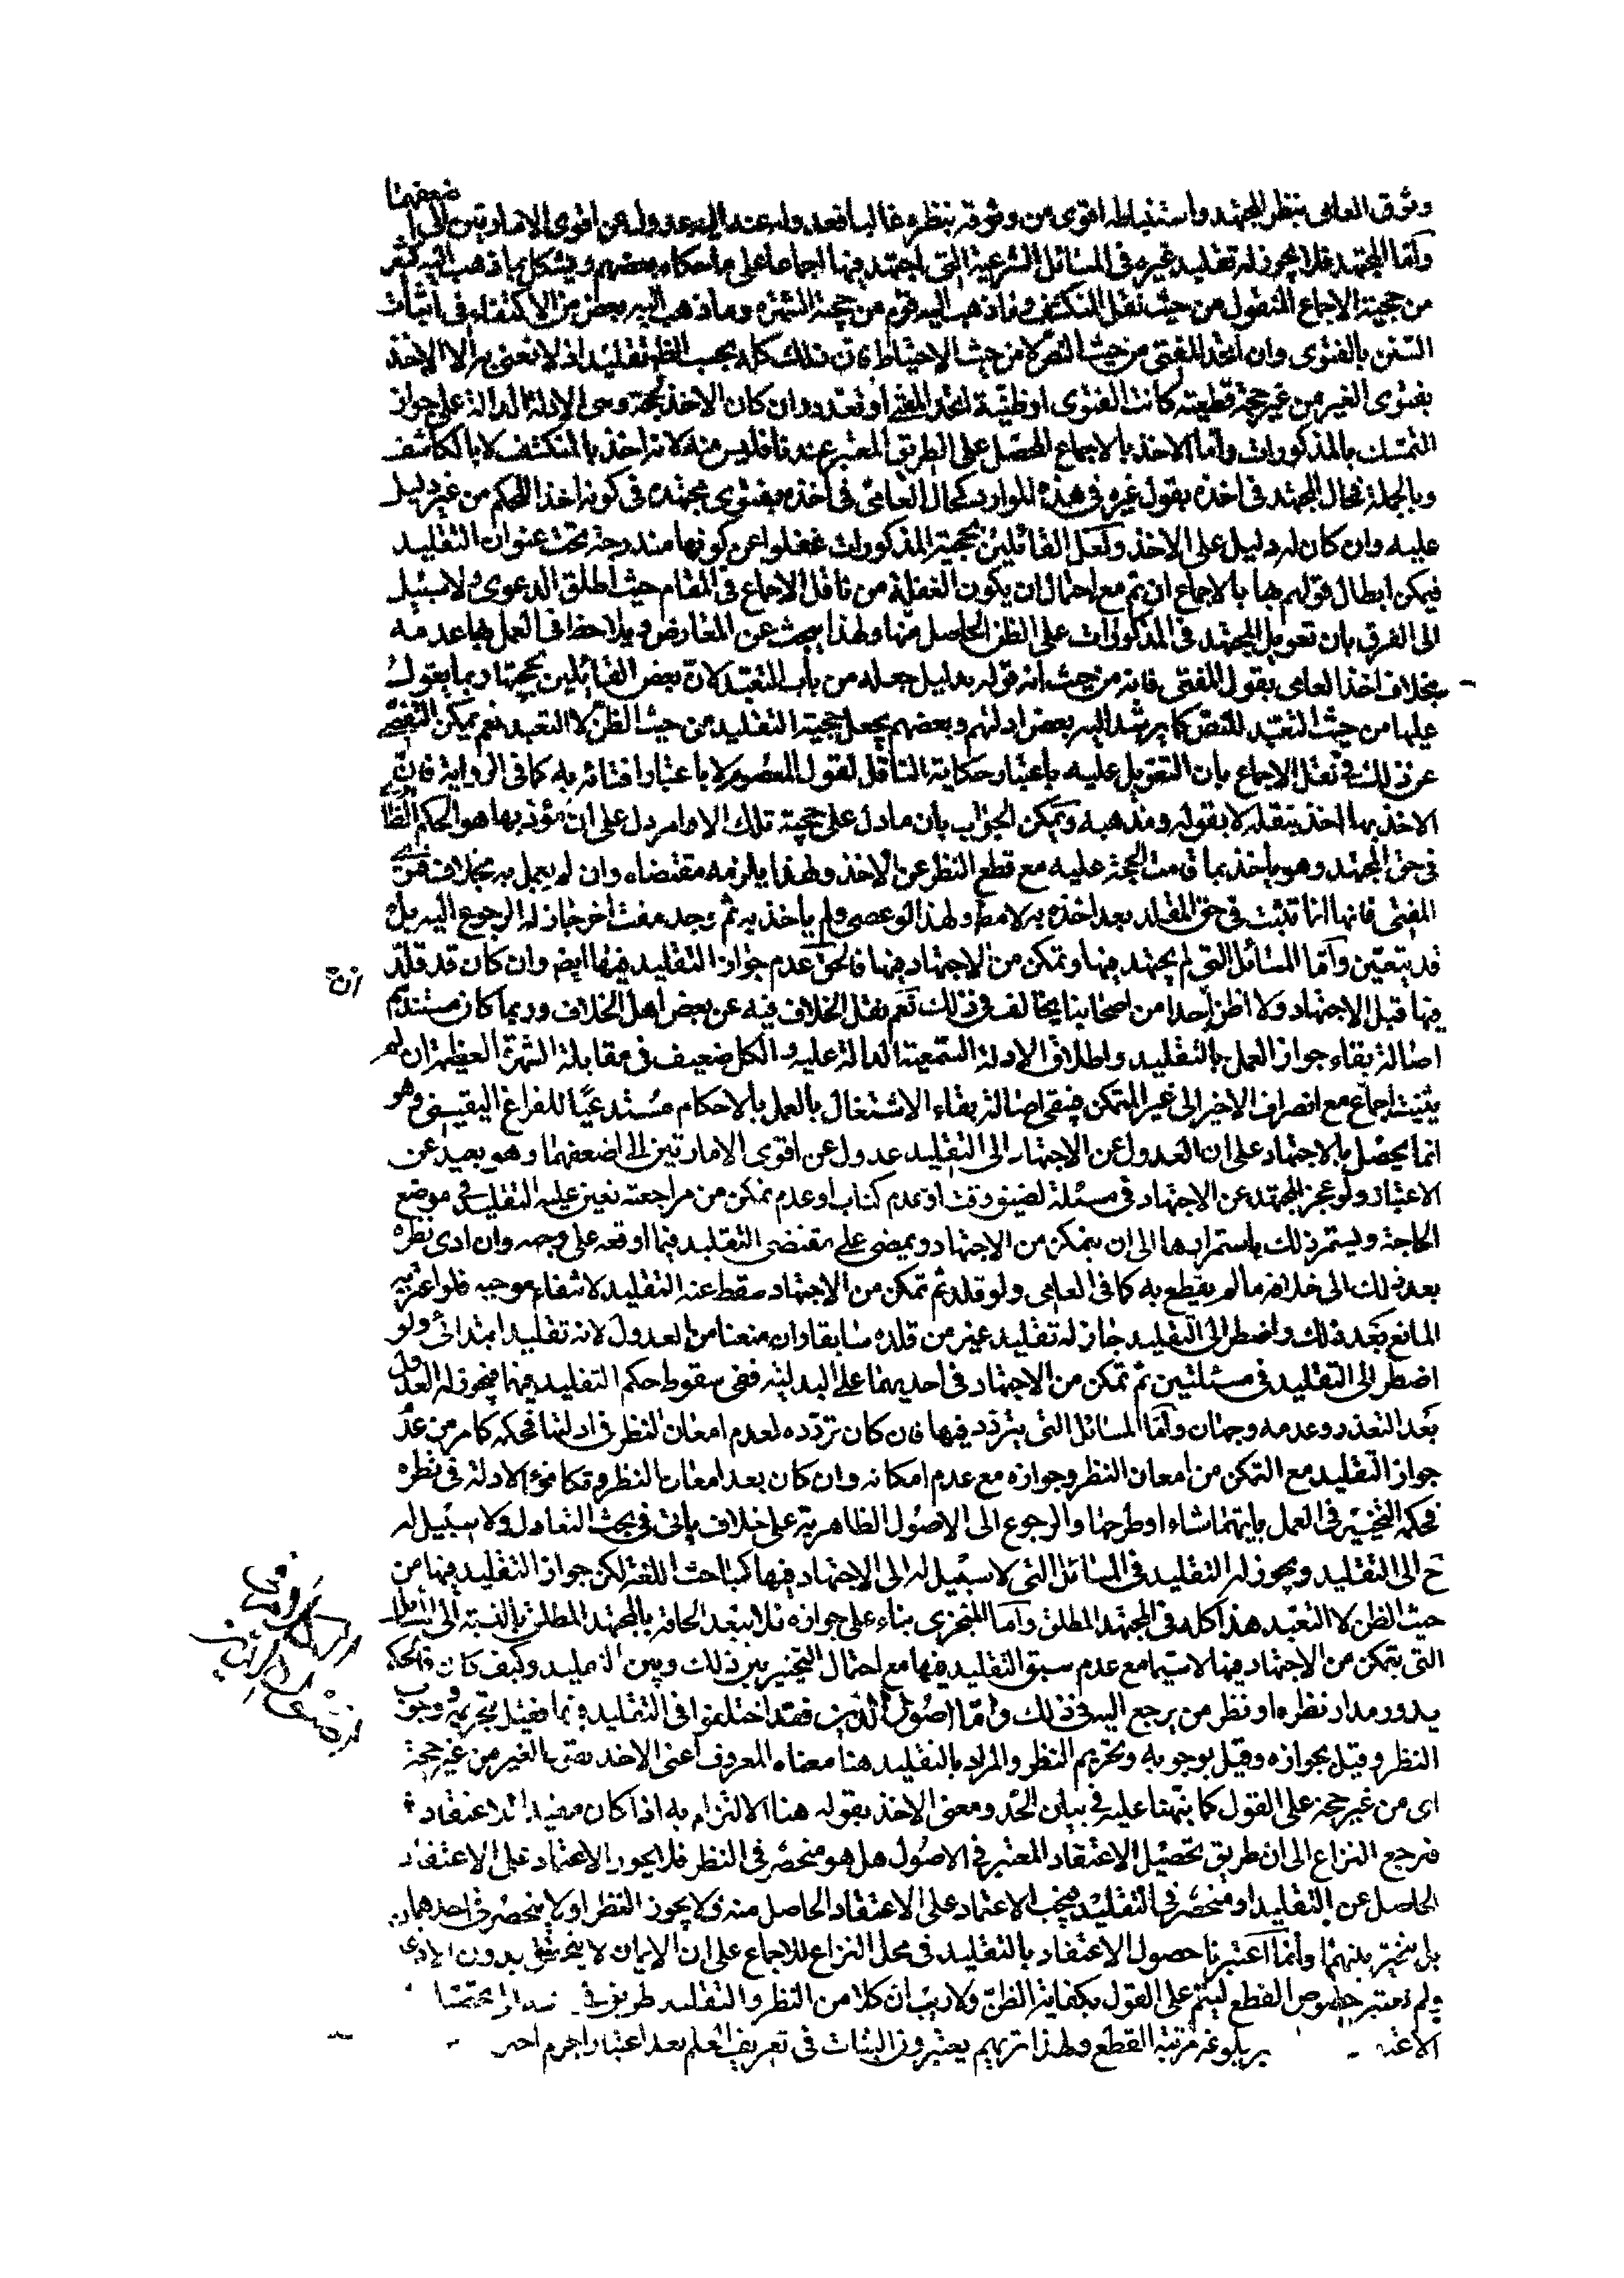 وثوق العامي بنظر المجتهد واستنباطه اقوى من وثوقه بنظره غالبا فعدوله عنه اليه عدول عن اقوى الامارتين الى اضعفهما
وامّا المجتهد فلا يجوز له تقليد غيره فى المسائل الشرعية التى اجتهد فيها اجماعا على ما حكاه بعضهم ويشكل بما ذهب اليه كثير
من حجية الاجماع المنقول من حيث نقل المنكشف وما ذهب اليه قوم من حجية الشهرة وما ذهب اليه بعض من الاكتفاء فى اثبات
السّنن بالفتوى وان اتحد المفتى من حيث النصّ لا من حيث الاحتياط فان ذلك كله بحسب الظ تقليد اذ لا نعنى به الا الاخذ
بفتوى الغير من غير حجة قطعية كانت الفتوى او ظنيّة اتحد المفتى او تعدد وان كان الاخذ بحجة وهى الادلة الدالة على جواز
التمسّك بالمذكورات وامّا الاخذ بالاجماع المحصّل على الطريق المعتبر عندنا فليس منه لانه اخذ بالمنكشف لا بالكاشف
وبالجملة فحال المجتهد فى اخذه بقول غيره فى هذه الموارد كحال العامىّ فى اخذه بفتوى مجتهده فى كونه اخذا للحكم من غير دليل
عليه وان كان له دليل على الاخذ ولعلّ القائلين بحجية المذكورات غفلوا عن كونها مندرجة تحت عنوان التقليد
فيمكن ابطال قولهم بها بالاجماع ان تم مع احتمال ان يكون الغفلة من ناقل الاجماع فى المقام حيث اطلق الدعوى ولا سبيل
الى الفرق بان تعويل المجتهد فى المذكورات على الظن الحاصل منها ولهذا يبحث عن المعارض ويلاحظ فى العمل بها عدمه
بخلاف اخذ العامى بقول المفتى فانه من حيث انه قوله بدليل جعله من باب التعبّد لان بعض القائلين بحجيتها ربما يعوّل
عليها من حيث التعبّد للنصّ كما يرشد اليه بعض ادلتهم وبعضهم يجعل حجية التقليد من حيث الظنّ لا التعبد نعم يمكن التفصّى
عن ذلك فى نقل الاجماع بان التعويل عليه باعتبار حكاية الناقل لقول المعصوم لا باعتبار افتائه به كما فى الرواية فانّ
الاخذ بها اخذ بنقله لا بقوله ومذهبه ويمكن الجواب بان ما دل على حجية تلك الاوامر دل على ان مؤديها هو الحكم الظا
فى حق المجتهد وهو يأخذ بما قامت الحجة عليه مع قطع النظر عن الاخذ ولهذا يلزمه مقتضاه وان لم يعمل به بخلاف فتوى
المفتى فانها انما تثبت فى حق المقلد بعد اخذه به لا مط ولهذا لو عصى ولم ياخذ به ثم وجد مفت اخر جاز له الرجوع اليه بل
قد يتعيّن وامّا المسائل التى لم يجتهد فيها وتمكن من الاجتهاد فيها فالحق عدم جواز التقليد فيها ايضا وان كان قد قلّد
فيها قبل الاجتهاد ولا اظن احدا من اصحابنا يخالف فى ذلك نعم نقل الخلاف فيه عن بعض اهل الخلاف وربما كان مستندهم
اصالة بقاء جواز العمل بالتقليد واطلاق الادلة السّمعية الدالة عليه والكل ضعيف فى مقابلة الشهرة العظيمة ان لم
يثبت اجماع مع انصراف الاخير الى غير المتمكن فيبقى اصالة بقاء الاشتغال بالعمل بالاحكام مستدعيًا للفراغ اليقينى وهو
انما يحصل بالاجتهاد على ان العدول عن الاجتهاد الى التقليد عدول عن اقوى الامارتين الى اضعفهما وهو بعيد عن
الاعتبار ولو عجز المجتهد عن الاجتهاد فى مسئلة لضيق وقت او عدم كتاب او عدم تمكن من مراجعته تعين عليه التقليد فى موضع
الحاجة ويستمر ذلك باستمرارها الى ان يتمكن من الاجتهاد ويمضى على مقتضى التقليد فيما اوقعه على وجهه وان ادى نظره
بعد ذلك الى خلافه ما لم يقطع به كما فى العامى ولو قلد ثم تمكن من الاجتهاد سقط عنه التقليد لانتفاء موجبه فلو اعتريه
المانع بعد ذلك واضطر الى التقليد جاز له تقليد غير من قلده سابقا وان منعنا من العدول لانه تقليد ابتدائى ولو
اضطر الى التقليد فى مسئلتين ثم تمكن من الاجتهاد فى احديهما على البدلية ففى سقوط حكم التقليد فيهما فيجوز له العدول
بعد التعذر وعدمه وجهان وامّا المسائل التى يتردّد فيها فان كان تردّده لعدم امعان النظر فى ادلتها فحكمه كما مر من عدم
جواز التقليد مع التمكن من امعان النظر وجوازه مع عدم امكانه وان كان بعد امعان النظر وتكافؤ الادلة فى نظره
فحكمه التخيير فى العمل بايّهما شاء او طرحهما والرجوع الى الاصول الظاهريّة على خلاف يأتى فى بحث التعادل ولا سبيل له
ح الى التقليد ويجوز له التقليد فى المسائل التى لا سبيل له الى الاجتهاد فيها كمباحث اللغة لكن جواز التقليد فيها من
حيث الظن لا التعبّد هذا كله فى المجتهد المطلق وامّا المتجزى بناء على جوازه فلا يبعد الحاقه بالمجتهد المطلق بالنسبة الى المسائل
التى يتمكن من الاجتهاد فيها لا سيّما مع عدم سبق التقليد فيها مع احتمال التخيير بين ذلك وبين التقليد وكيف كان فالحكم
يدور مدار نظره او نظر من يرجع اليه فى ذلك وامّا اصول الدّين فقد اختلفوا فى التقليد فيها فقيل بتحريمه ووجوب
النظر وقيل بجوازه وقيل بوجوبه وتحريم النظر والمراد بالتقليد هنا معناه المعروف اعنى الاخذ بقول الغير من غير حجة
اى من غير حجة على القول كما نبّهنا عليه فى بيان الحدّ ومعنى الاخذ بقوله هنا الالتزام به اذا كان مفيدا للاعتقاد
فمرجع النزاع الى ان طريق تحصيل الاعتقاد المعتبر فى الاصول هل هو منحصر فى النظر فلا يجوز الاعتماد على الاعتقاد
الحاصل عن التقليد او منحصر فى التقليد فيجب الاعتماد على الاعتقاد الحاصل منه ولا يجوز النظر او لا ينحصر فى احدهما
بل يتخير بينهما وانما اعتبرنا حصول الاعتقاد بالتقليد فى محل النزاع للاجماع على ان الايمان لا يتحقق بدون
ولم نعتبر خصوص القطع ليتم على القول بكفاية الظنّ ولا ريب ان كلا من النظر والتقليد طريق فى
بلوغه مرتبة القطع ولهذا تريهم يعتبرون الثبات فى تعريف العلم بعد اعتبار الجزم